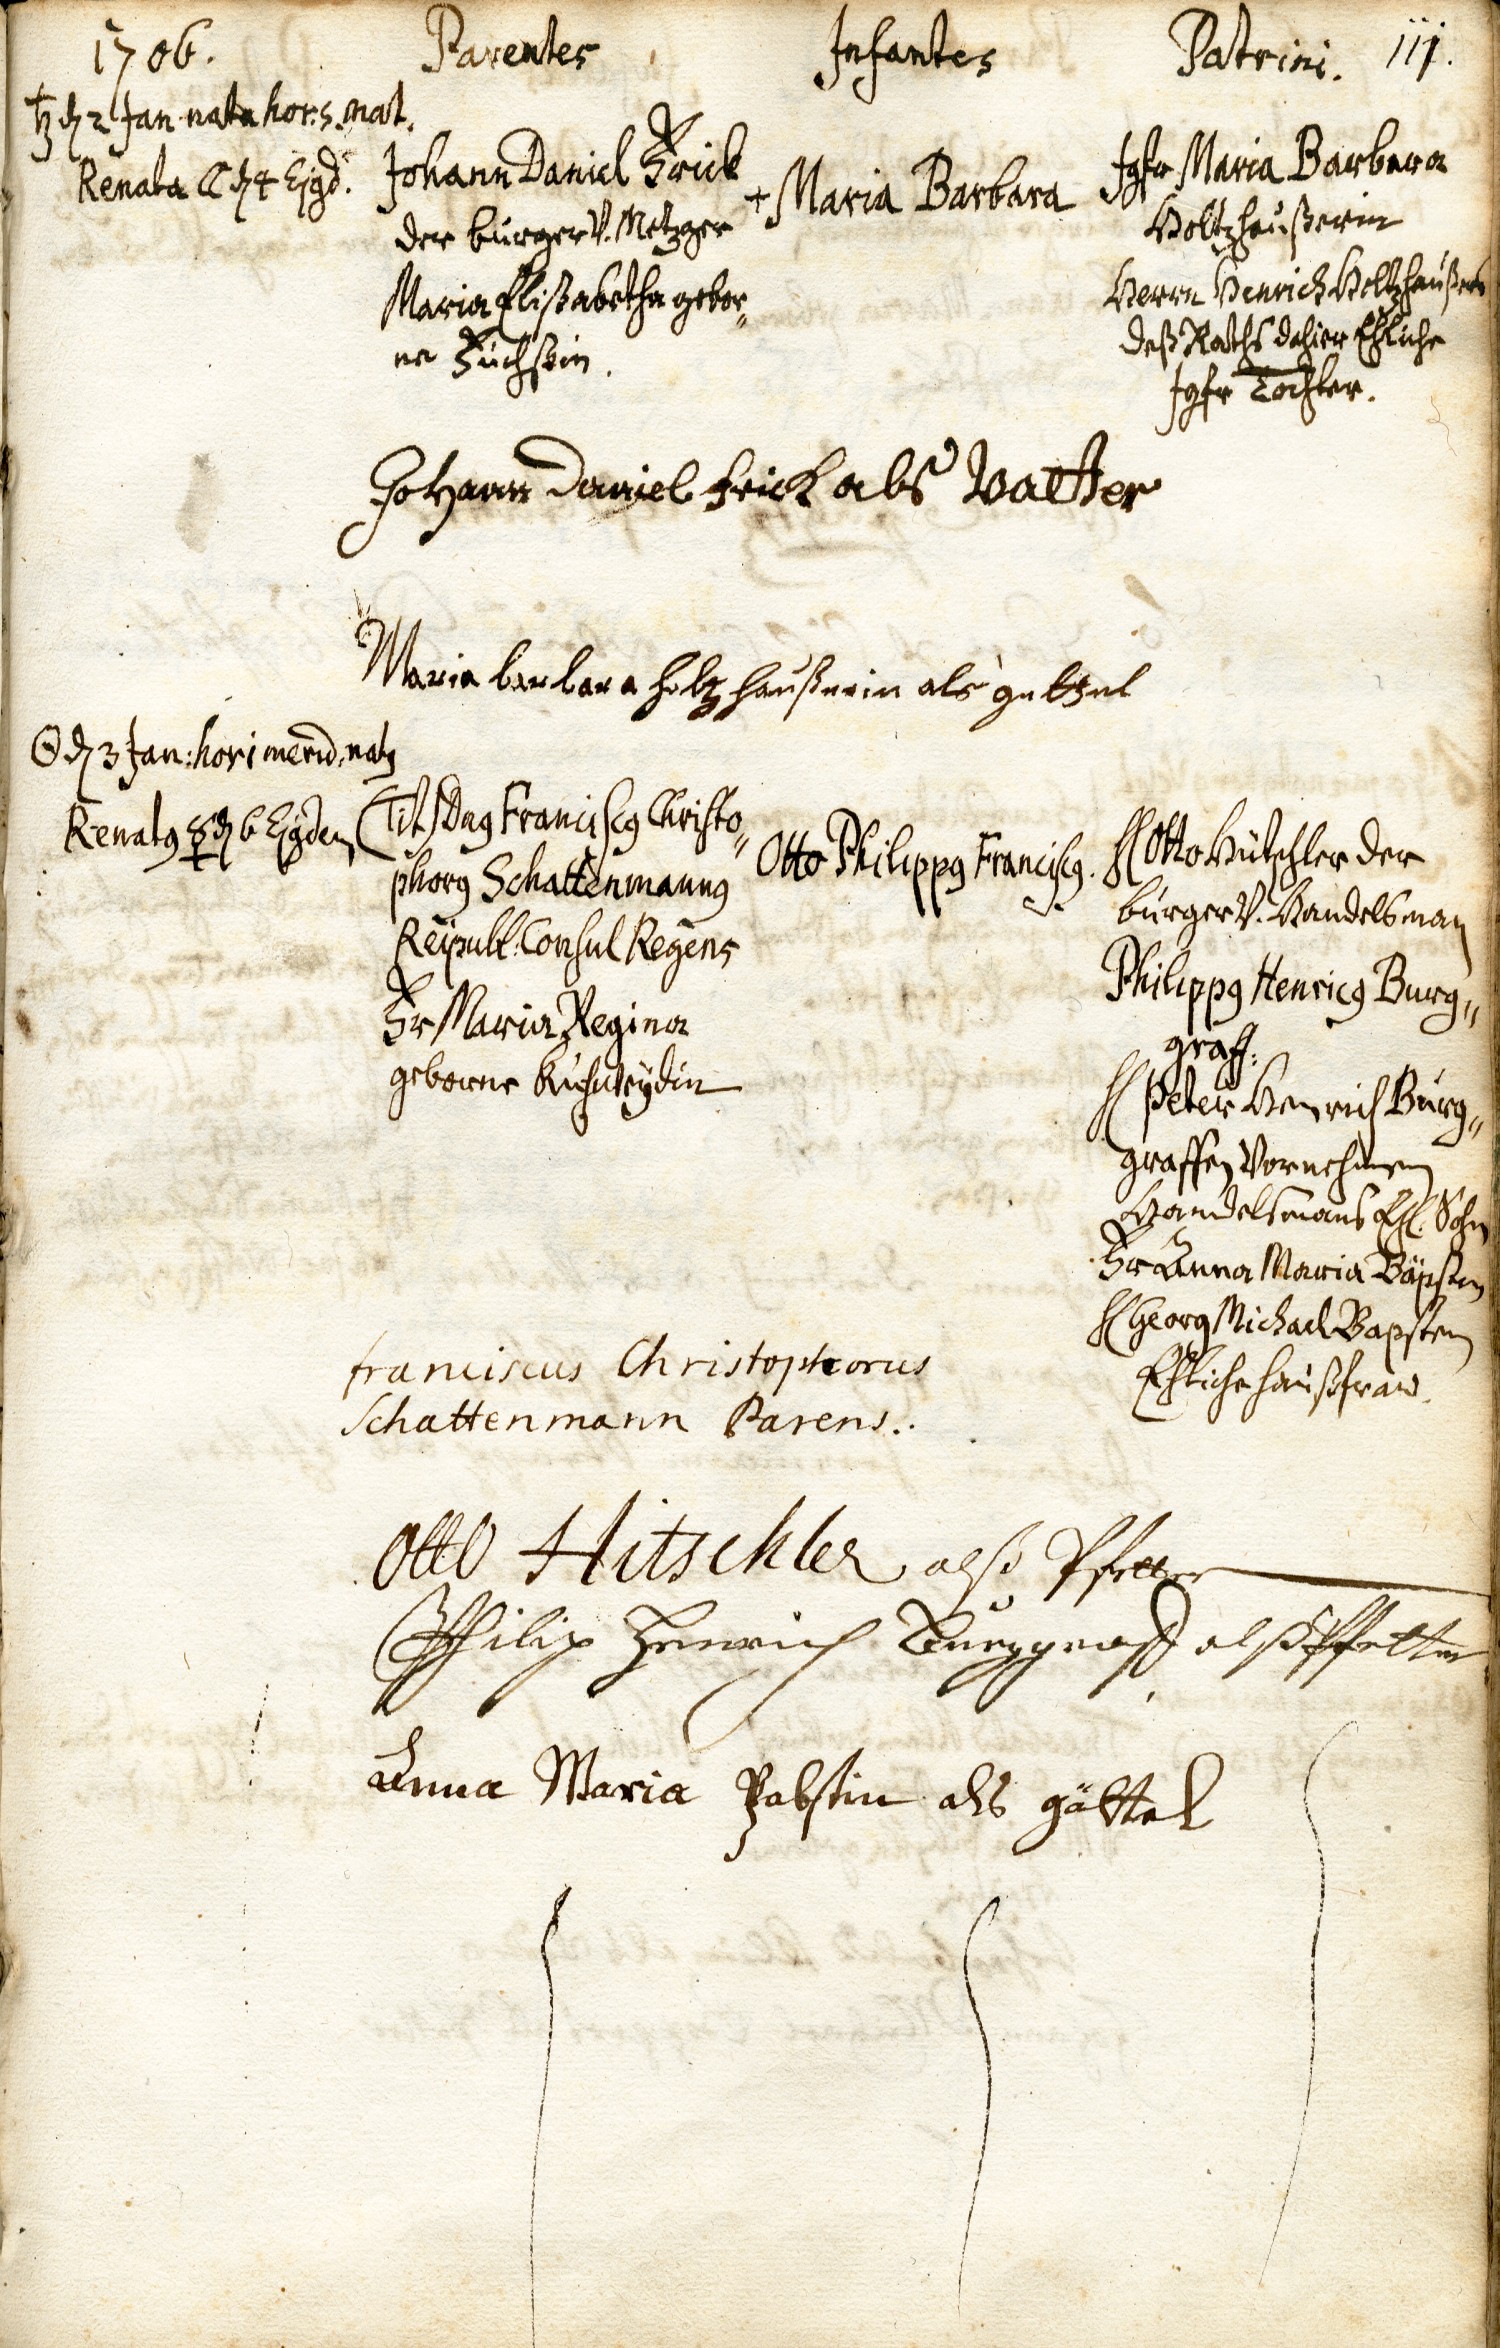 1706. Parentes Infantes Patrini. 111.
♄ dz 2 Jan nata hor: 5. mat.
Renata ☾ dz 4 Ejgd.
Johann Daniel Frick
der burger V. Metzger
Maria Elißabetha gebor„
ne Fuchßin.
+ Maria Barbara
Jgfr Maria Barbara
Holtzhaußerin
Herrn Henrich Holtzhaußers
deß Raths dahier Ehliche
Jgfr Tochter.
Johann Daniel Frick alss Vatter
Maria barbara holtzhaußerin als gettel
☉ dz 3 Jan: hor 1 merid. natꝰ
Renatꝰ ☿ dz 6 Ejgdem
(Tit) Dnꝰ Franciscꝰ Christo„
phorꝰ Schattenmannꝰ
Reipubl: Consul Regens
Fr Maria Regina
geborne
Otto Philippꝰ Franciscꝰ.
H Otto Hütschler der
burger V. Handelsman
Philippꝰ Henricꝰ Burg„
graff:
H Peter Henrich Burg„
graffen Vornehmen
Handelsmans Ehl. Sohn
Fr Anna Maria Bäpstin
H Georg Michael Bapsten
Ehliche haußfraw.
franciscus Christophorus
Schattenmann Parens..
Otto Hitschler alß Pfetter
Philip Henrich Burggraff alß Pfetter
Anna Maria Pabstin als göttel